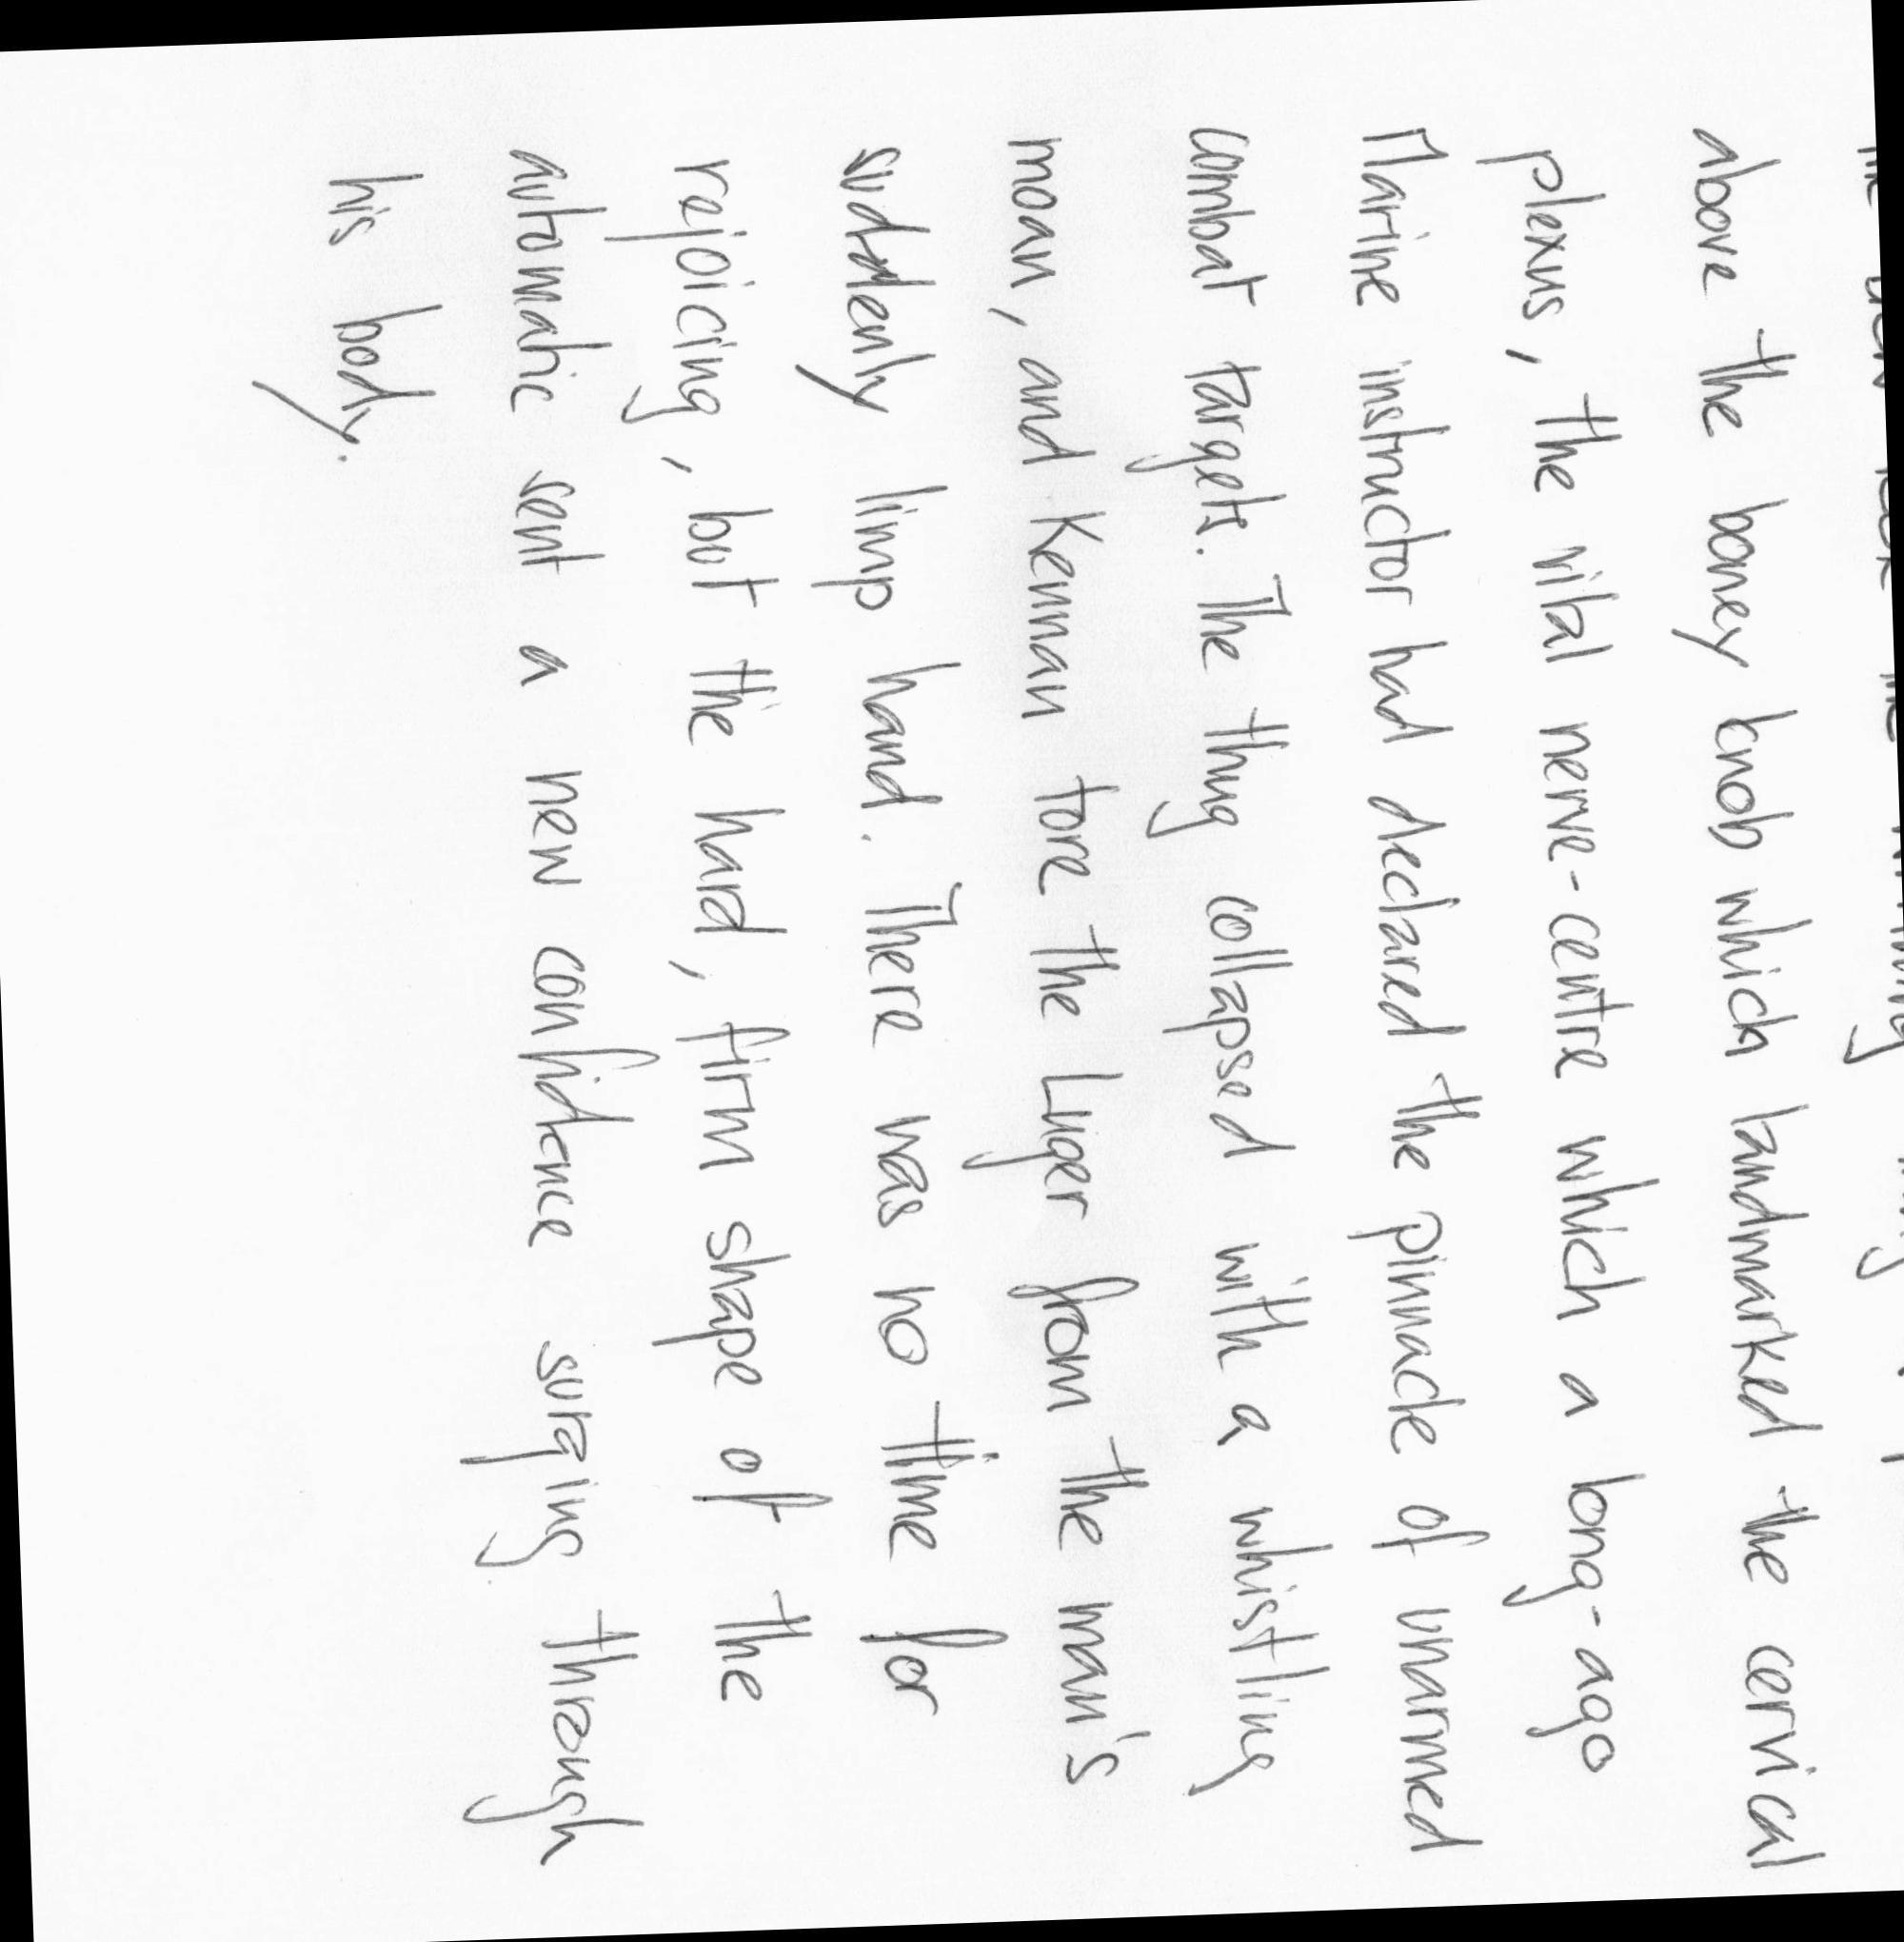 above the boney knob which landmarked the cervical
plexus, the vital nerve-centre which a long-ago
Marine instructor had declared the pinnacle of unarmed
combat targets. The thug collapsed with a whistling
moan, and Kennan tore the Luger from the man's
suddenly limp hand. There was no time for
rejoicing, but the hard, firm shape of the
automatic sent a new confidence surging through
his body.